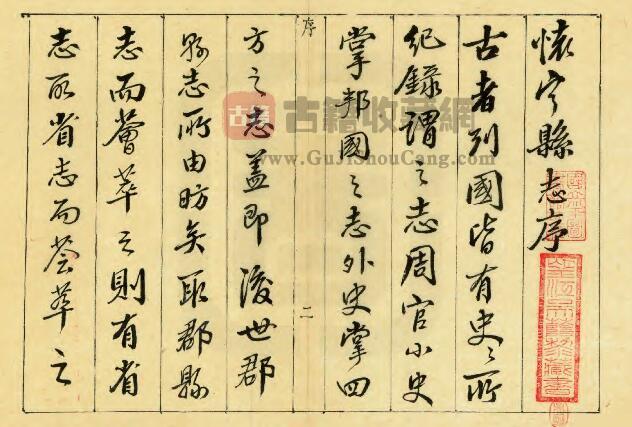 懷宁縣志序
古者列國皆有史〻所
紀錄謂之志周官小史
掌邦國之志外史掌四
序
二
方之志蓋即後世郡
縣志所由昉矣取郡縣
志而薈萃之則有省
志取省志而薈萃之
古籍
古籍收藏網
www.GuJiShouCang.com